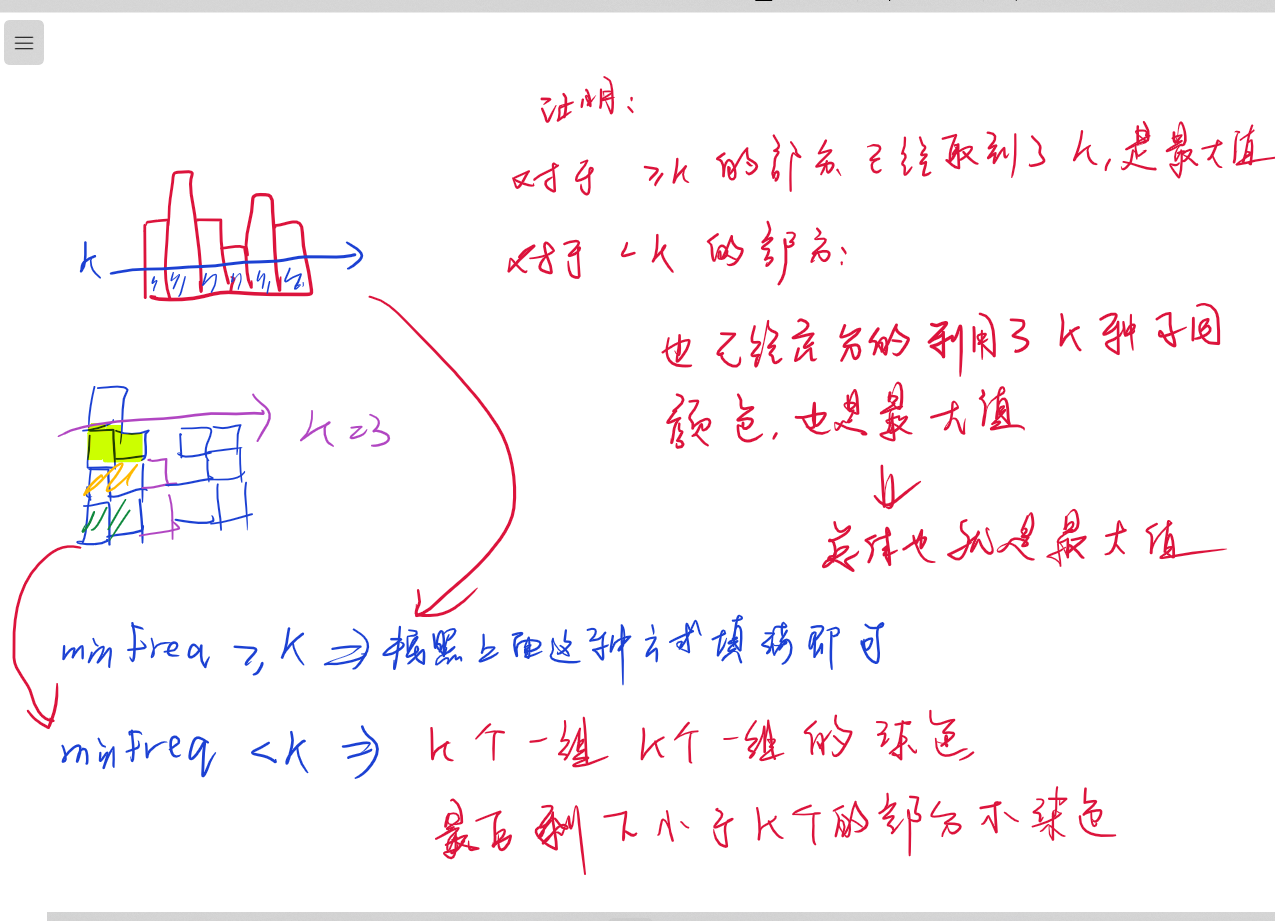 证明:
对于 ≥k 的部分 已经取到了 k, 是最大值
k
对于 <k 的部分:
也已经充分的利用了 k 种不同
颜色, 也是最大值
k=3
总体也就是最大值
minFreq ≥ k ⇒ 按照上面这种方式填充即可
minFreq < k ⇒ k个一组 k个一组的染色,
最后剩下小于k个的部分不染色